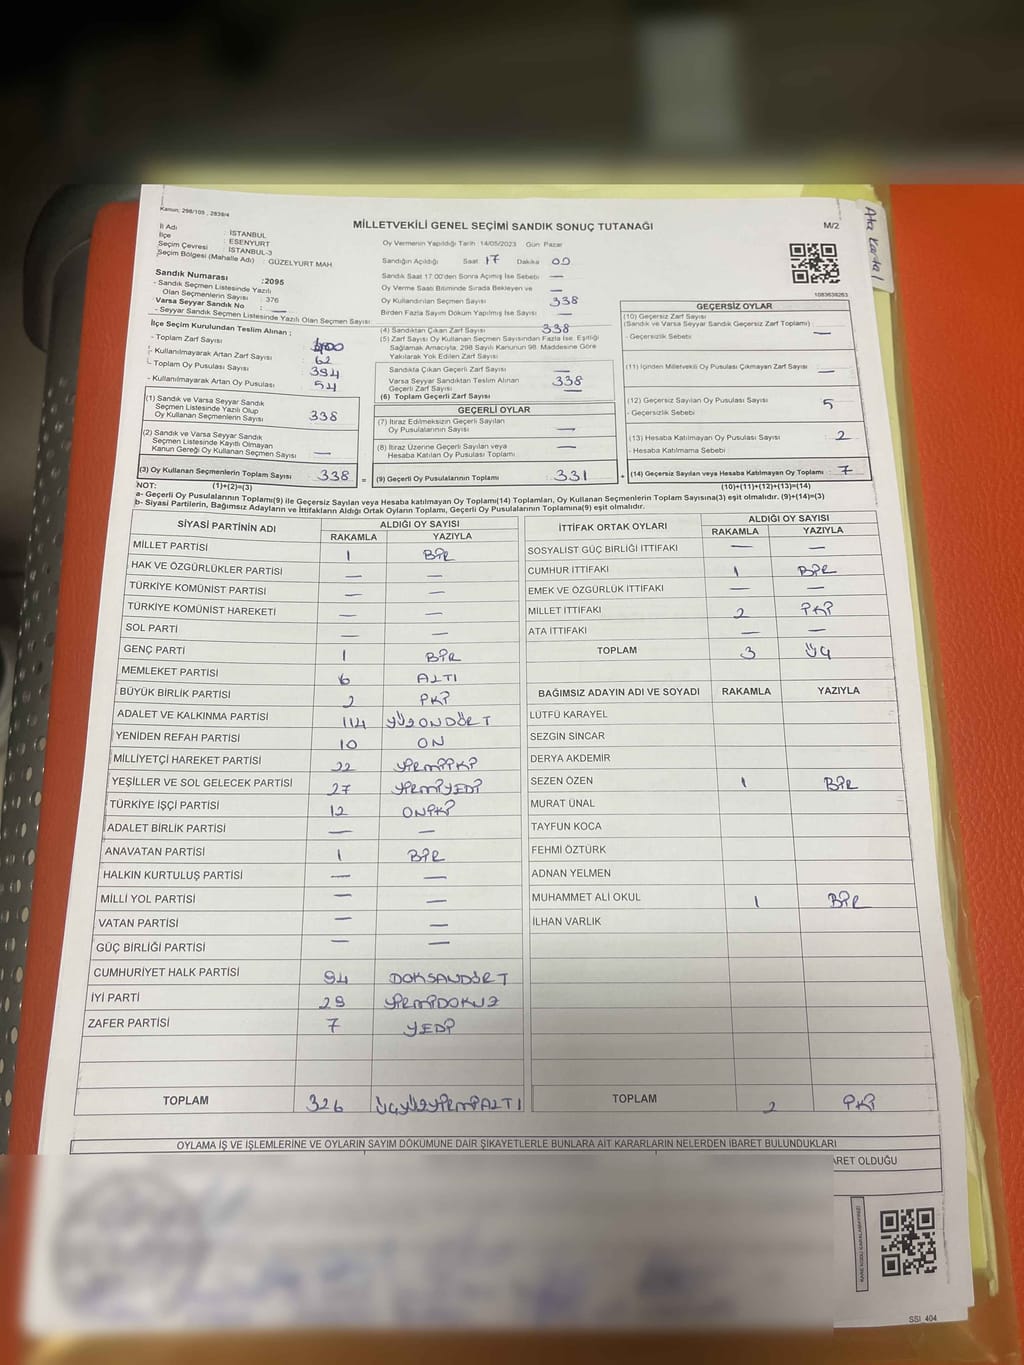 Kanun: 298/105 , 2839/4
MİLLETVEKİLİ GENEL SEÇİMİ SANDIK SONUÇ TUTANAĞI
M/2
Ata Kartal
İl Adı : İSTANBUL
İlçe : ESENYURT
Seçim Çevresi : İSTANBUL-3
Seçim Bölgesi (Mahalle Adı) : GÜZELYURT MAH
Oy Vermenin Yapıldığı Tarih : 14/05/2023 Gün Pazar
Sandığın Açıldığı Saat 17 Dakika 00
Sandık Saat 17:00'den Sonra Açımış İse Sebebi —
Oy Verme Saati Bitiminde Sırada Bekleyen ve
Oy Kullandırılan Seçmen Sayısı — 338
Birden Fazla Sayım Döküm Yapılmış İse Sayısı —
1083638263
Sandık Numarası :2095
- Sandık Seçmen Listesinde Yazılı
Olan Seçmenlerin Sayısı : 376
Varsa Seyyar Sandık No : —
- Seyyar Sandık Seçmen Listesinde Yazılı Olan Seçmen Sayısı
İlçe Seçim Kurulundan Teslim Alınan ;
- Toplam Zarf Sayısı 400
- Kullanılmayarak Artan Zarf Sayısı 62
- Toplam Oy Pusulası Sayısı 394
- Kullanılmayarak Artan Oy Pusulası 54
(1) Sandık ve Varsa Seyyar Sandık
Seçmen Listesinde Yazılı Olup
Oy Kullanan Seçmenlerin Sayısı 338
(2) Sandık ve Varsa Seyyar Sandık
Seçmen Listesinde Kayıtlı Olmayan
Kanun Gereği Oy Kullanan Seçmen Sayısı —
(3) Oy Kullanan Seçmenlerin Toplam Sayısı 338
(1)+(2)=(3)
(4) Sandıktan Çıkan Zarf Sayısı 338
(5) Zarf Sayısı Oy Kullanan Seçmen Sayısından Fazla İse; Eşitliği
Sağlamak Amacıyla, 298 Sayılı Kanunun 98. Maddesine Göre
Yakılarak Yok Edilen Zarf Sayısı
Sandıkta Çıkan Geçerli Zarf Sayısı —
Varsa Seyyar Sandıktan Teslim Alınan
Geçerli Zarf Sayısı 338
(6) Toplam Geçerli Zarf Sayısı —
GEÇERLİ OYLAR
(7) İtiraz Edilmeksizin Geçerli Sayılan
Oy Pusulalarının Sayısı —
(8) İtiraz Üzerine Geçerli Sayılan veya
Hesaba Katılan Oy Pusulaları Toplamı —
= (9) Geçerli Oy Pusulalarının Toplamı 331
GEÇERSİZ OYLAR
(10) Geçersiz Zarf Sayısı
(Sandık ve Varsa Seyyar Sandık Geçersiz Zarf Toplamı) : —
- Geçersizlik Sebebi
(11) İçinden Milletvekili Oy Pusulası Çıkmayan Zarf Sayısı —
(12) Geçersiz Sayılan Oy Pusulası Sayısı 5
- Geçersizlik Sebebi
(13) Hesaba Katılmayan Oy Pusulası Sayısı 2
- Hesaba Katılmama Sebebi
+ (14) Geçersiz Sayılan veya Hesaba Katılmayan Oy Toplamı : 7
(10)+(11)+(12)+(13)=(14)
NOT:
a- Geçerli Oy Pusulalarının Toplamı(9) ile Geçersiz Sayılan veya Hesaba katılmayan Oy Toplamı(14) Toplamları, Oy Kullanan Seçmenlerin Toplam Sayısına(3) eşit olmalıdır. (9)+(14)=(3)
b- Siyasi Partilerin, Bağımsız Adayların ve İttifakların Aldığı Ortak Oyların Toplamı, Geçerli Oy Pusulalarının Toplamına(9) eşit olmalıdır.
SİYASİ PARTİNİN ADI ALDIĞI OY SAYISI
RAKAMLA YAZIYLA
MİLLET PARTİSİ 1 BİR
HAK VE ÖZGÜRLÜKLER PARTİSİ — —
TÜRKİYE KOMÜNİST PARTİSİ — —
TÜRKİYE KOMÜNİST HAREKETİ — —
SOL PARTİ — —
GENÇ PARTİ 1 BİR
MEMLEKET PARTİSİ 6 ALTI
BÜYÜK BİRLİK PARTİSİ 2 İKİ
ADALET VE KALKINMA PARTİSİ 114 YÜZONDÖRT
YENİDEN REFAH PARTİSİ 10 ON
MİLLİYETÇİ HAREKET PARTİSİ 22 YİRMİİKİ
YEŞİLLER VE SOL GELECEK PARTİSİ 27 YİRMİYEDİ
TÜRKİYE İŞÇİ PARTİSİ 12 ONİKİ
ADALET BİRLİK PARTİSİ — —
ANAVATAN PARTİSİ 1 BİR
HALKIN KURTULUŞ PARTİSİ — —
MİLLİ YOL PARTİSİ — —
VATAN PARTİSİ — —
GÜÇ BİRLİĞİ PARTİSİ — —
CUMHURİYET HALK PARTİSİ 94 DOKSANDÖRT
İYİ PARTİ 29 YİRMİDOKUZ
ZAFER PARTİSİ 7 YEDİ
TOPLAM 326 ÜÇYÜZYİRMİALTI
İTTİFAK ORTAK OYLARI ALDIĞI OY SAYISI
RAKAMLA YAZIYLA
SOSYALİST GÜÇ BİRLİĞİ İTTİFAKI — —
CUMHUR İTTİFAKI 1 BİR
EMEK VE ÖZGÜRLÜK İTTİFAKI — —
MİLLET İTTİFAKI 2 İKİ
ATA İTTİFAKI — —
TOPLAM 3 ÜÇ
BAĞIMSIZ ADAYIN ADI VE SOYADI RAKAMLA YAZIYLA
LÜTFÜ KARAYEL
SEZGİN SİNCAR
DERYA AKDEMİR
SEZEN ÖZEN 1 BİR
MURAT ÜNAL
TAYFUN KOCA
FEHMİ ÖZTÜRK
ADNAN YELMEN
MUHAMMET ALİ OKUL 1 BİR
İLHAN VARLIK
TOPLAM 2 İKİ
OYLAMA İŞ VE İŞLEMLERİNE VE OYLARIN SAYIM DÖKÜMÜNE DAİR ŞİKAYETLERLE BUNLARA AİT KARARLARIN NELERDEN İBARET BULUNDUKLARI
ARET OLDUĞU
KARE KODU KARALAMAYINIZ!
SSİ 404